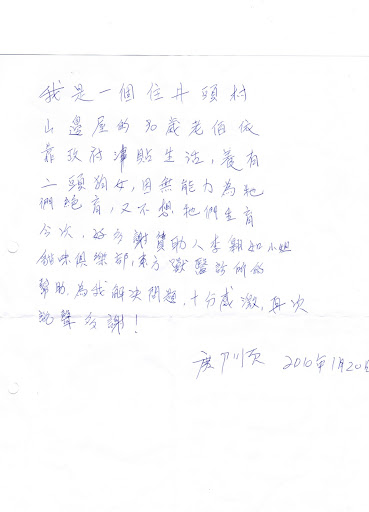 我是一個住井頭村
山邊屋的90歲老伯依
靠政府津貼生活,養有
二頭狗女,因無能力為牠
們絕育,又不想牠們生育
今次,好多謝贊助人李翱如小姐
俱樂部,東方獸醫診所的
幫助,為我解決問題,十分感激,再次
說聲多謝!
2010年1月20日